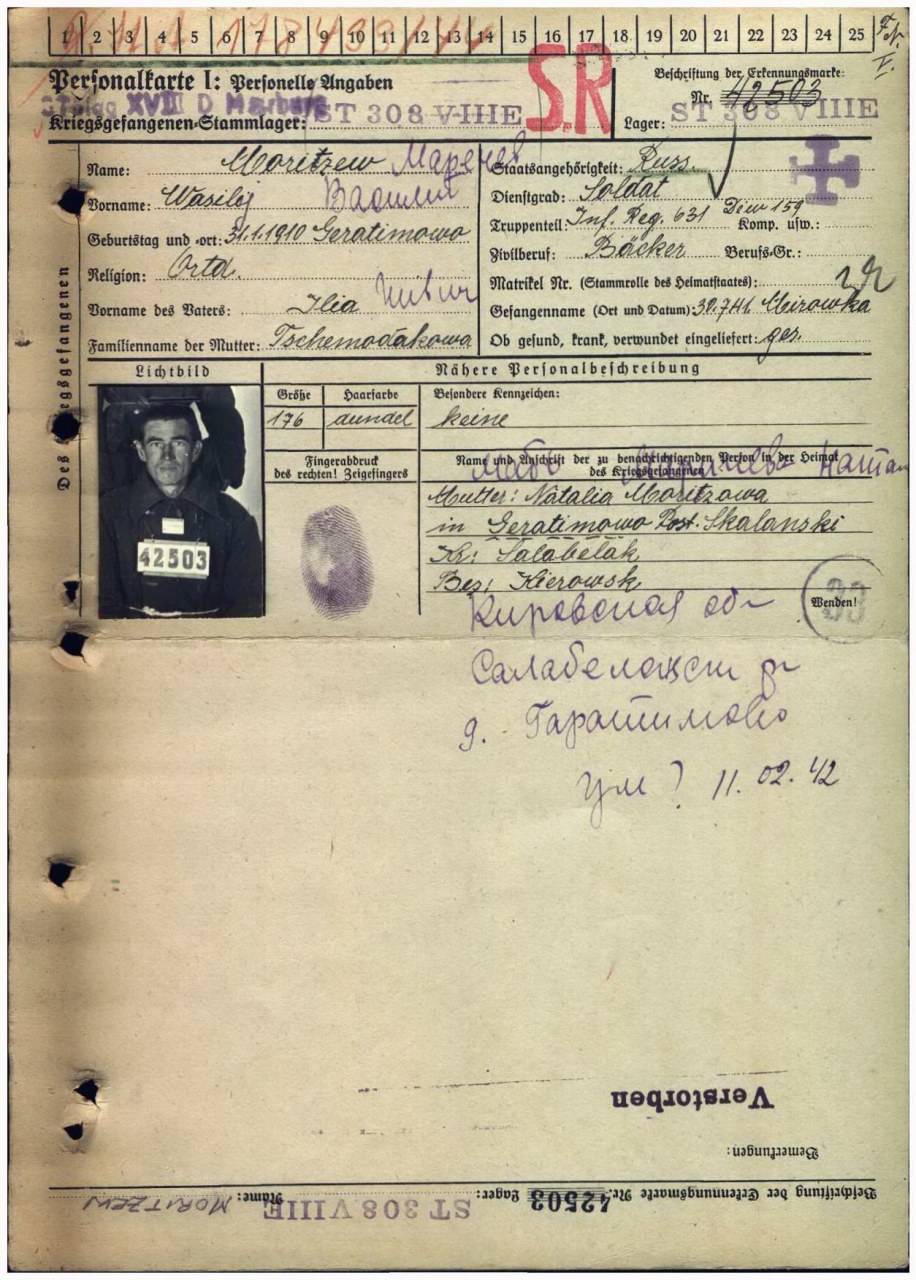 1 2 3 4 5 6 7 8 9 10 11 12 13 14 15 16 17 18 19 20 21 22 23 24 25
Personalkarte I: Personelle Angaben
Beschriftung der Erkennungsmarke:
Nr. 42503
Stalag XVIII D Marburg
S.R
Kriegsgefangenen-Stammlager: ST 308 VIIIE
Lager: ST 308 VIIIE
Des Kriegsgefangenen
Name: Moritzew
Vorname: Wasilij Василий
Geburtstag und -ort: 31.1.1910 Geratimowo
Religion: Ortd.
Vorname des Vaters: Ilia
Familienname der Mutter: Tschemodakowa
Staatsangehörigkeit: Russ.
Dienstgrad: Soldat
Truppenteil: Inf. Reg. 631 Diw 159 Komp. usw.:
Zivilberuf: Bäcker Berufs-Gr.:
Matrikel Nr. (Stammrolle des Heimatstaates):
Gefangenname (Ort und Datum): 30.7.41. Mirowka
Ob gesund, krank, verwundet eingeliefert: ges.
Lichtbild
Nähere Personalbeschreibung
Größe
Haarfarbe
Besondere Kennzeichen:
176
dunkel
keine
42503
Fingerabdruck
des rechten! Zeigefingers
Name und Anschrift der zu benachrichtigenden Person in der Heimat
des Kriegsgefangenen
Mutter: Natalia Moritzowa
in Geratimowo Post. Skalanski
Kr: Salabelak
Bez: Kierowsk.
Wenden!
33
Кировская обл
Салабеляжски рн
д. Гаратимово
11. 02. 42
Verstorben
Bemerkungen:
Beschriftung der Erkennungsmarke Nr. 42503 Lager: ST 308 VIIIE Name: MORITZEW